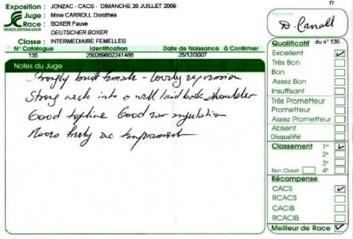 77
Exposition : JONZAC - CACS - DIMANCHE 26 JUILLET 2009
Juge : Mme CARROLL Dorothea
Race : BOXER Fauve
DEUTSCHER BOXER
Classe : INTERMEDIAIRE FEMELLES
N° Catalogue Identification Date de Naissance à Confirmer
135 250269602241466 25/12/2007
Notes du Juge
Strongly built female - Lovely expression
Strong neck into a well laid back shoulder
Good topline Good rear angulation
Moves freely
D. Carroll
Qualificatif du n° 135
Excellent
Très Bon
Bon
Assez Bon
Insuffisant
Très Prometteur
Prometteur
Assez Prometteur
Absent
Disqualifié
Classement 1er
2e
3e
Non Classé 4e
Récompense
CACS
RCACS
CACIB
RCACIB
Meilleur de Race